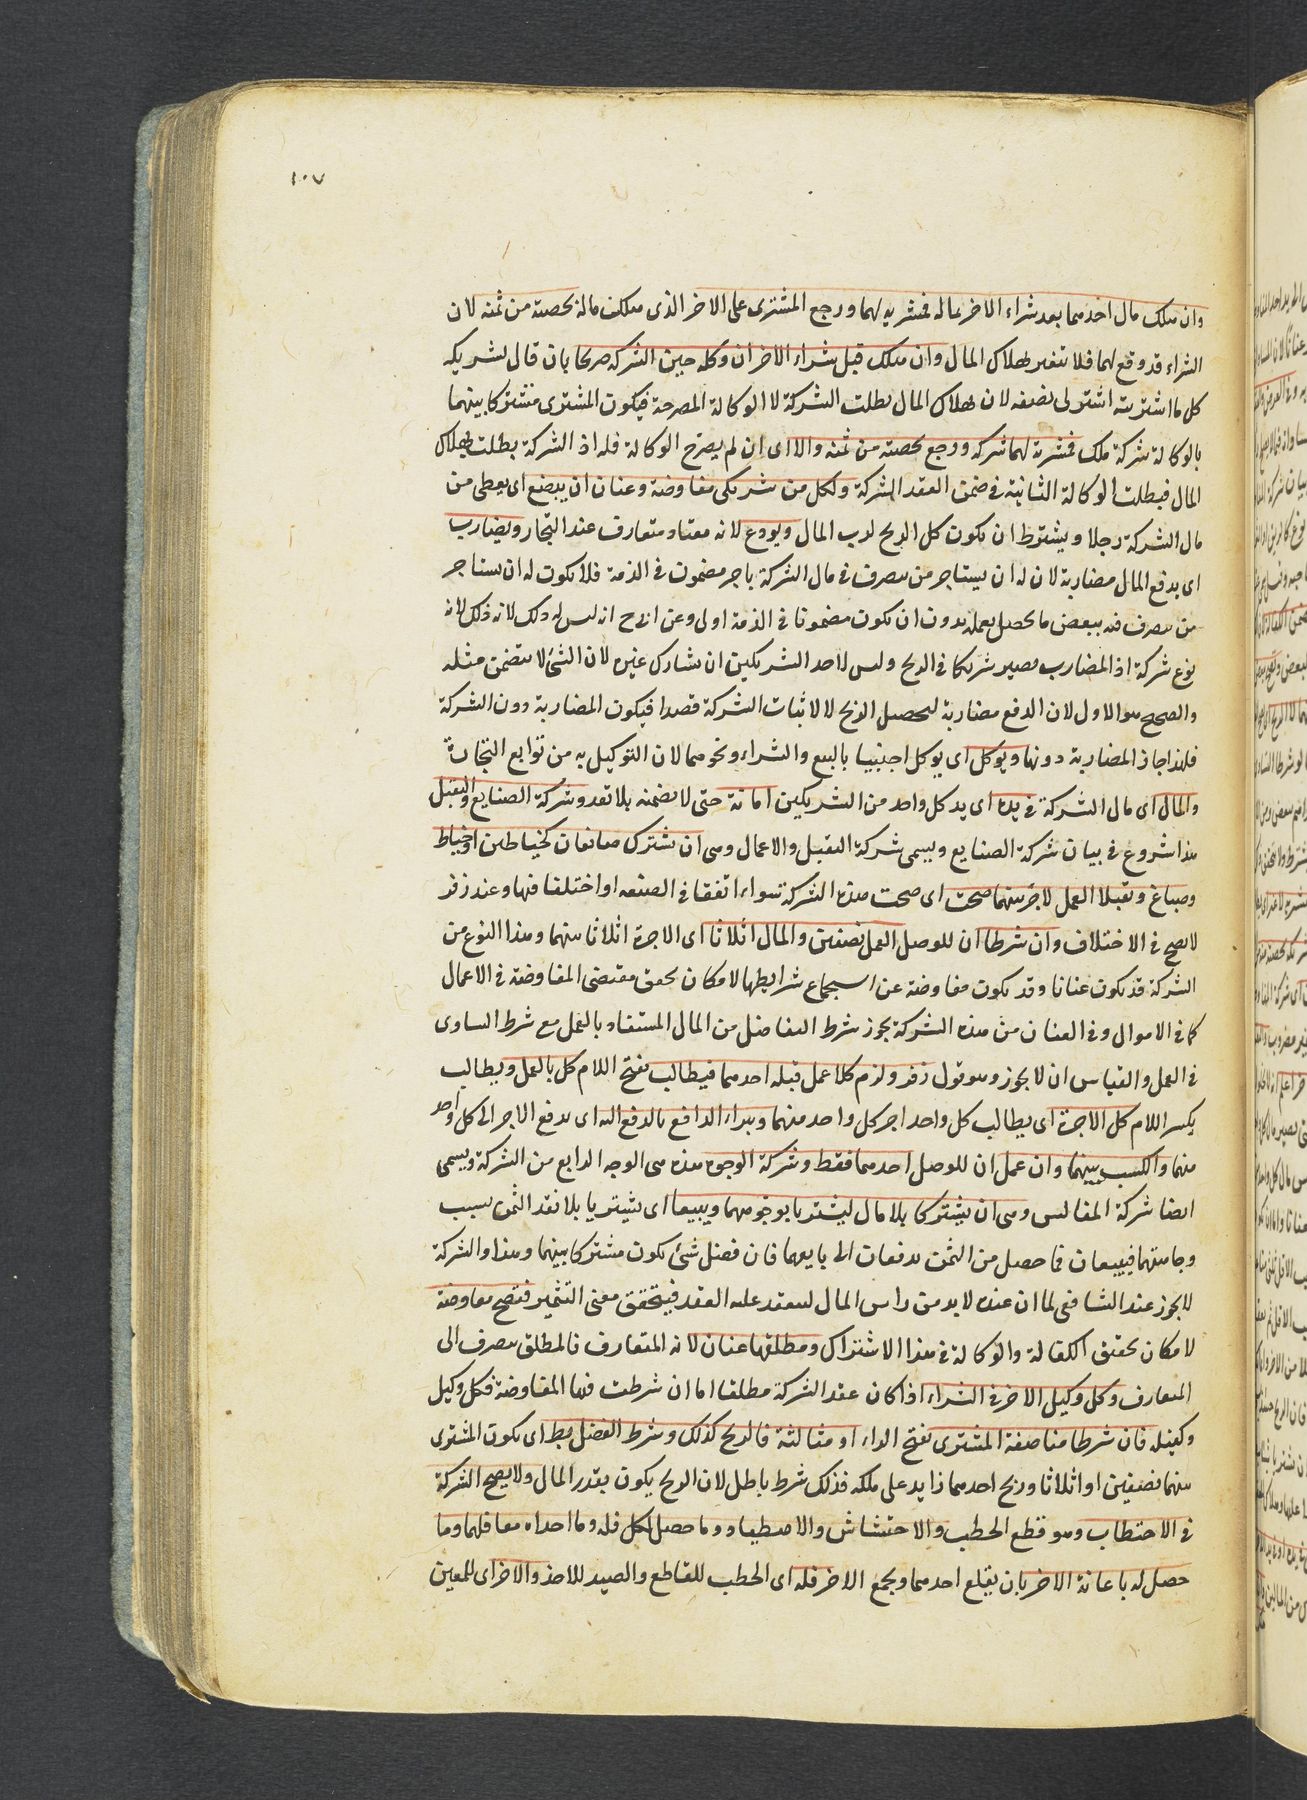 ١٠٧
وان هلك مال احدهما بعد شراء الاخر بماله فمشريه لهما ورجع المشترى على الاخر الذى هلك ماله بحصته من ثمنه لان
الشراء قد وقع لهما فلا تتغير بهلاك المال وان هلك قبل شراء الاخر ان وكله حين الشركه صريحا بان قال لشريكه
كل ما اشتريته اشتر لى نصفه لان بهلاك المال بطلت الشركة لا الوكالة المصرحة فيكون المشترى مشتركا بينهما
بالوكالة شركة ملك فمشريه لهما شركه ورجع بحصته من ثمنه والا اى ان لم يصرح الوكالة فله اذ الشركة بطلت بهلاك
المال فبطلت الوكالة الثانية فى ضمن العقد الشركة ولكل من شريكى مفاوضة وعنان ان يبضع اى يعطى من
مال الشركة رجلا ويشترط ان يكون كل الربح لرب المال ويودع لانه معتاد متعارف عند التجار ويضارب
اى يدفع المال مضاربة لان له ان يستاجر من يتصرف فى مال الشركة باجر مضمون فى الذمة فلا يكون له ان يستاجر
من يتصرف فيه ببعض ما يحصل بعمله بدون ان يكون مضمونا فى الذمة اولى وعن ابى ح انه ليس له ذلك لانه ذلك لانه
نوع شركة اذ المضارب يصير شريكا فى الربح وليس لاحد الشريكين ان يشارك غيره لان الشئ لا يتضمن مثله
والصحيح هو الاول لان الدفع مضاربة لتحصيل الربح لا لاثبات الشركة قصدا فيكون المضاربة دون الشركة
فلهذا جاز المضاربة دونها ويوكل اى يوكل اجنبيا بالبيع والشراء ونحوهما لان التوكيل به من توابع التجارة
والمال اى مال الشركة فى يده اى يد كل واحد من الشريكين امانة حتى لا يضمنه بلا تعد وشركة الصنايع والتقبل
هذا شروع فى بيان شركة الصنايع ويسمى شركة التقبل والاعمال وهى ان يشترك صانعان كخياطين او خياط
وصباغ وتقبلا العمل لاجر بينهما صحت اى صحت هذه الشركة سواء اتفقا فى الصنعه او اختلفا فيها وعند زفر
لا يصح فى الاختلاف وان شرطا ان للوصل العمل نصفين والمال اثلاثا اى الاجرة اثلاثا بينهما وهذا النوع من
الشركة قد يكون عنانا وقد يكون مفاوضة عن استجماع شرايطها لامكان تحقق مقتضى المفاوضة فى الاعمال
كما فى الاموال وفى العنان من هذه الشركة يجوز شرط التفاضل من المال المستفاد بالعمل مع شرط التساوى
فى العمل والقياس ان لا يجوز وهو قول زفر ولزم كلا عمل قبله احدهما فيطالب بفتح اللام كل بالعمل ويطالب
بكسر اللام كل الاجرة اى يطالب كل واحد اجر كل واحد منهما ويبراء الدافع بالدفع اليه اى بدفع الاجر الى كل واحد
منهما والكسب بينهما وان عمل ان للوصل احدهما فقط وشركة الوجوه هذه هى الوجه الرابع من الشركة ويسمى
ايضا شركة المفاليس وهى ان يشتركا بلا مال ليشتريا بوجوههما ويبيعا اى يشتريا بلا نقد الثمن بسبب
وجاهتهما فيبيعان فما حصل من الثمن يدفعان الى بايعهما فان فضل شئ يكون مشتركا بينهما وهذا والشركة
لا يجوز عند الشافعى لما ان عنده لا بد من راس المال لينعقد عليه العقد فيتحقق معنى التثمير فتصح مفاوضة
لامكان تحقق الكفالة والوكالة فى هذا الاشتراك ومطلقها عنان لانه المتعارف فالمطلق يصرف الى
المتعارف وكل وكيل الاخر فى الشراء اذا كان عقد الشركة مطلقا اما ان شرطت فيها المفاوضة فكل وكيل
وكفيله فان شرطا مناصفة المشترى بفتح الراء او مثالثة فالربح كذلك وشرط الفضل بط اى يكون المشترى
بينهما نصفين او اثلاثا وربح احدهما زايد على ملكه فذلك شرط باطل لان الربح يكون بقدر المال ولا يصح الشركة
فى الاحتطاب وهو قطع الحطب والاحتشاش والاصطياد وما حصل لكل فله وما اخذاه معا فلهما وما
حصل له باعانة الاخر بان يقلع احدهما ويجمع الاخر فله اى الحطب للقاطع والصيد للاخذ والاخر اى للمعين